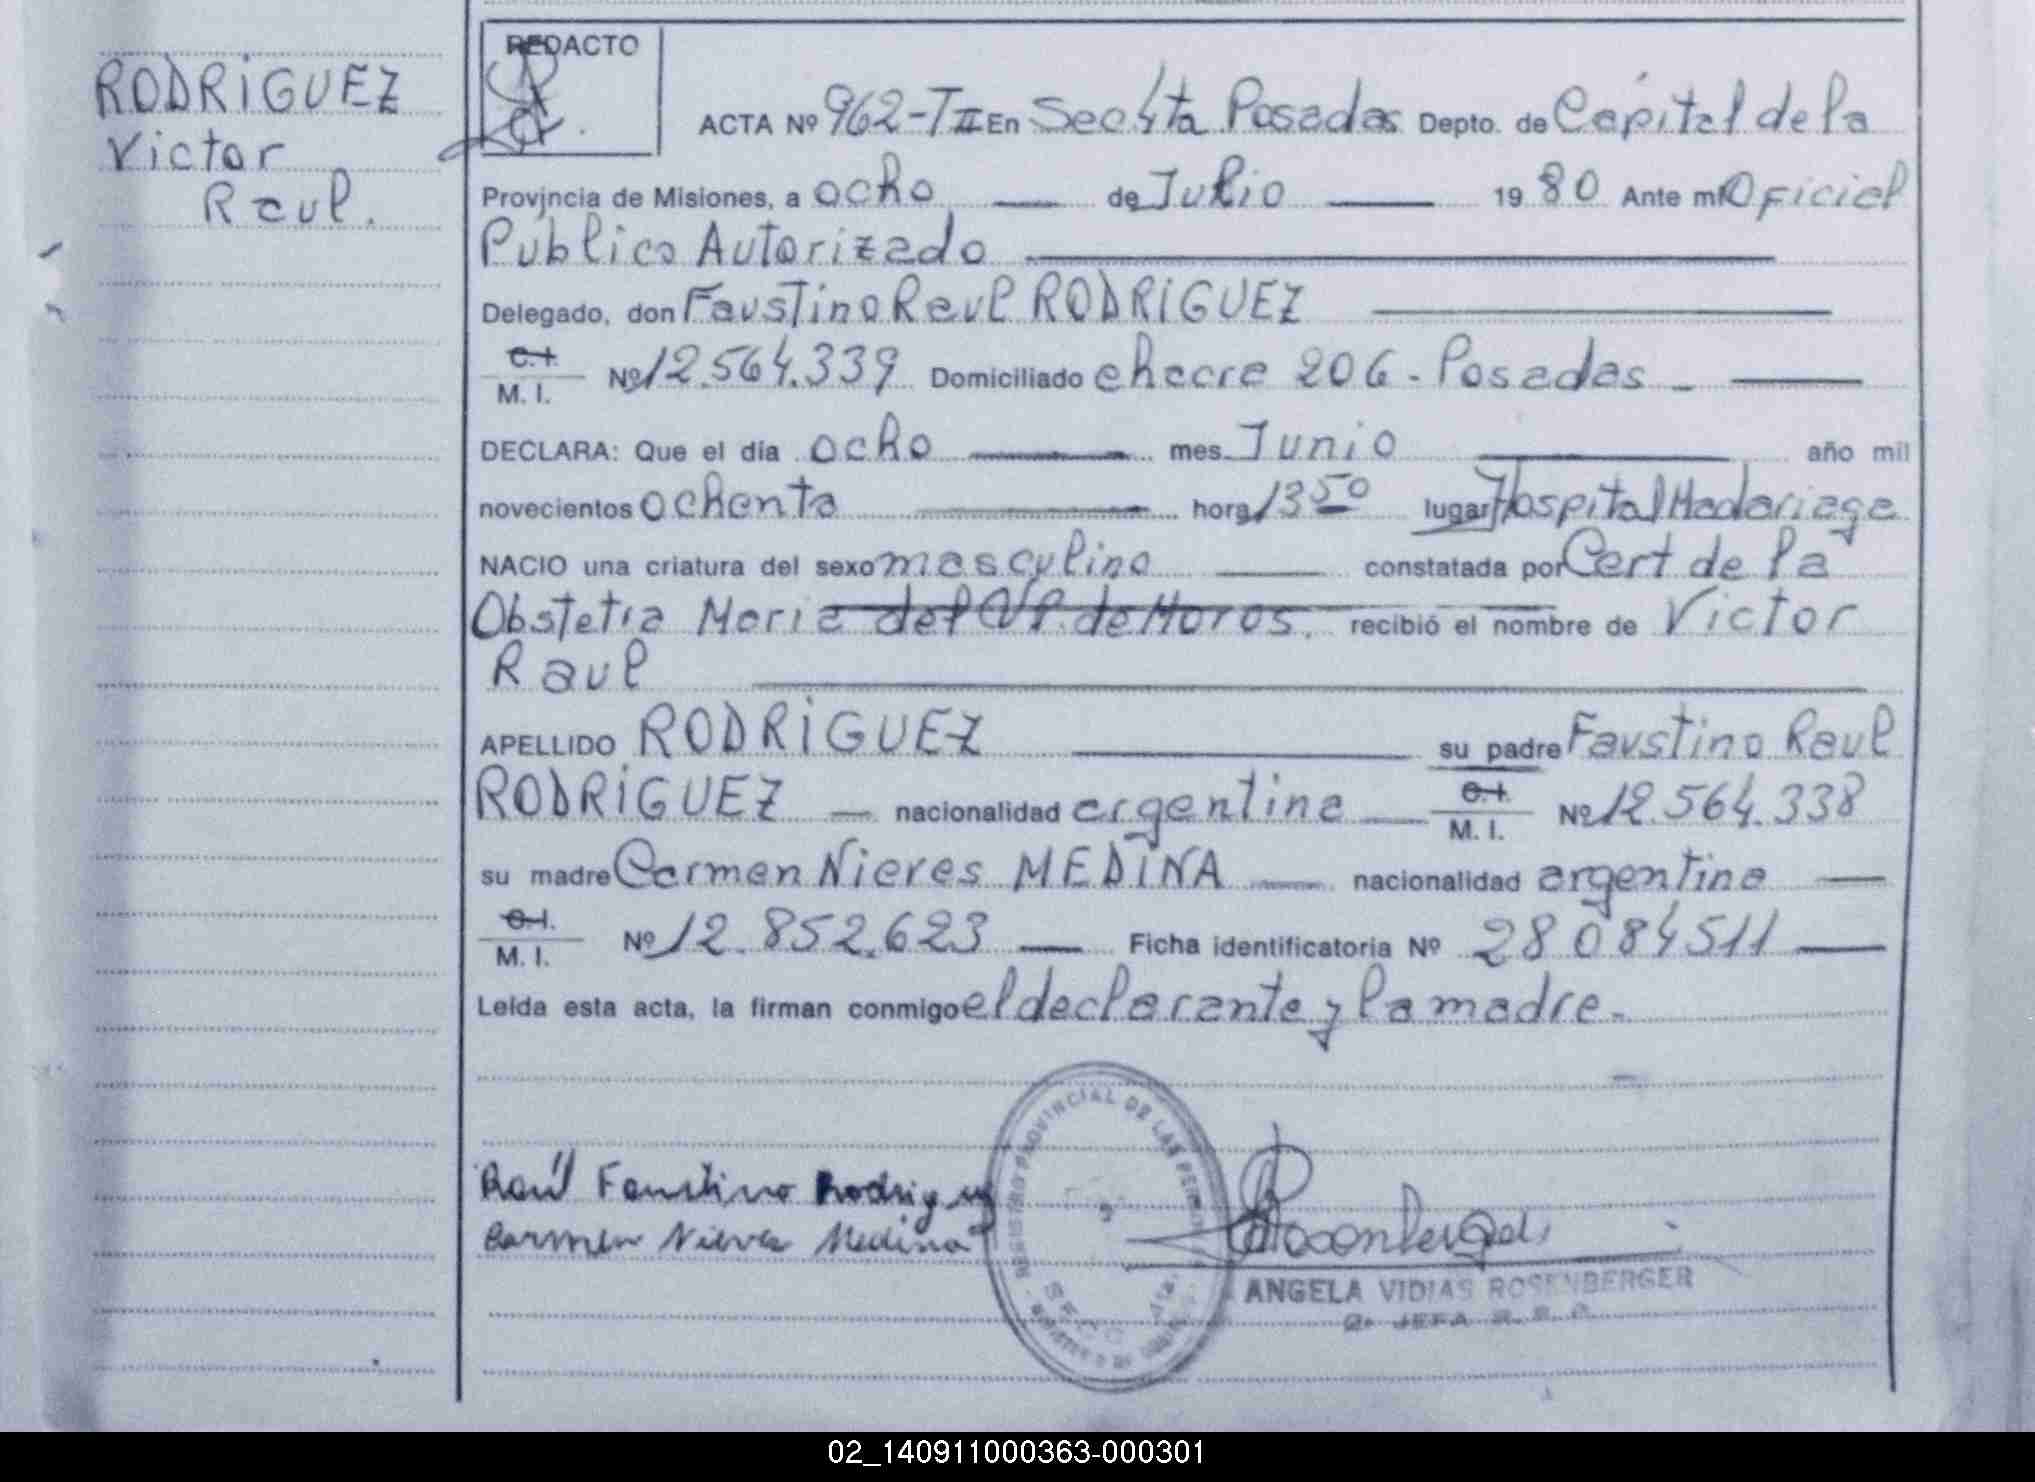 RODRIGUEZ
Victor
Raul.
REDACTO
ACTA Nº 962-TII En Secc 4ta Posadas Depto. de Capital de la
Provincia de Misiones, a ocho de Julio 1980 Ante mí Oficial
Público Autorizado
Delegado, don Faustino Raul RODRIGUEZ
C.I.
M. I. Nº 12.564.339 Domiciliado chacra 206 - Posadas -
DECLARA: Que el día ocho mes Junio año mil
novecientos ochenta hora 13 50 lugar Hospital Madariaga
NACIO una criatura del sexo masculino constatada por Cert de la
Obstetra Maria del de Moros. recibió el nombre de Victor
Raul
APELLIDO RODRIGUEZ su padre Faustino Raul
RODRIGUEZ nacionalidad argentina C.I.
M. I. Nº 12.564.338
su madre Carmen Nieves MEDINA nacionalidad argentina
C.I.
M. I. Nº 12.852.623 Ficha identificatoria Nº 28084511
Leída esta acta, la firman conmigo el declarante y la madre.
REGISTRO PROVINCIAL DE LAS PERSONAS
SECC 4ta.
Raúl Faustino Rodriguez
Carmen Nieves Medina
ANGELA VIDIAS ROSENBERGER
JEFA
02_140911000363-000301